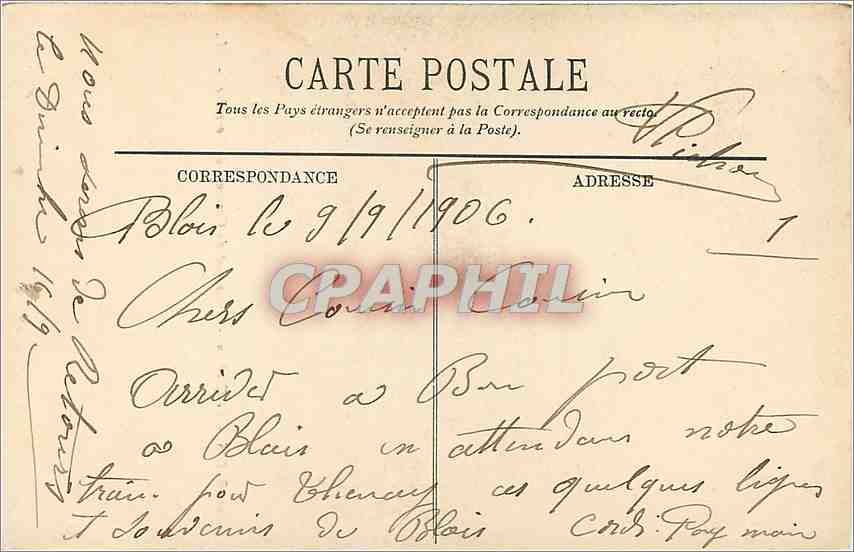 CARTE POSTALE
Tous les Pays étrangers n'acceptent pas la Correspondance au recto.
(Se renseigner à la Poste).
CORRESPONDANCE
ADRESSE
Blois le 9/9/1906.
1
CPARPHIL
Chers Cousin Cousine
Arrivés a Bon port
a Blois en attendant notre
train pour Thenay ces quelques lignes
et souvenirs de Blois
Nous serons de Retours
le Dimanche 16/9